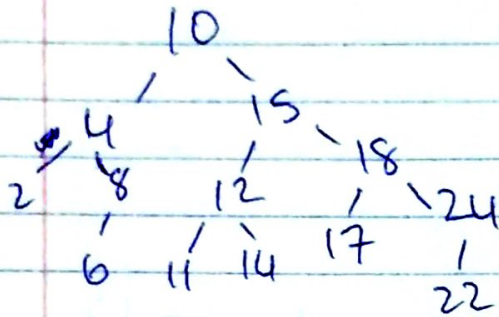 10
4 15
2 8 12 18
6 11 14 17 24
22